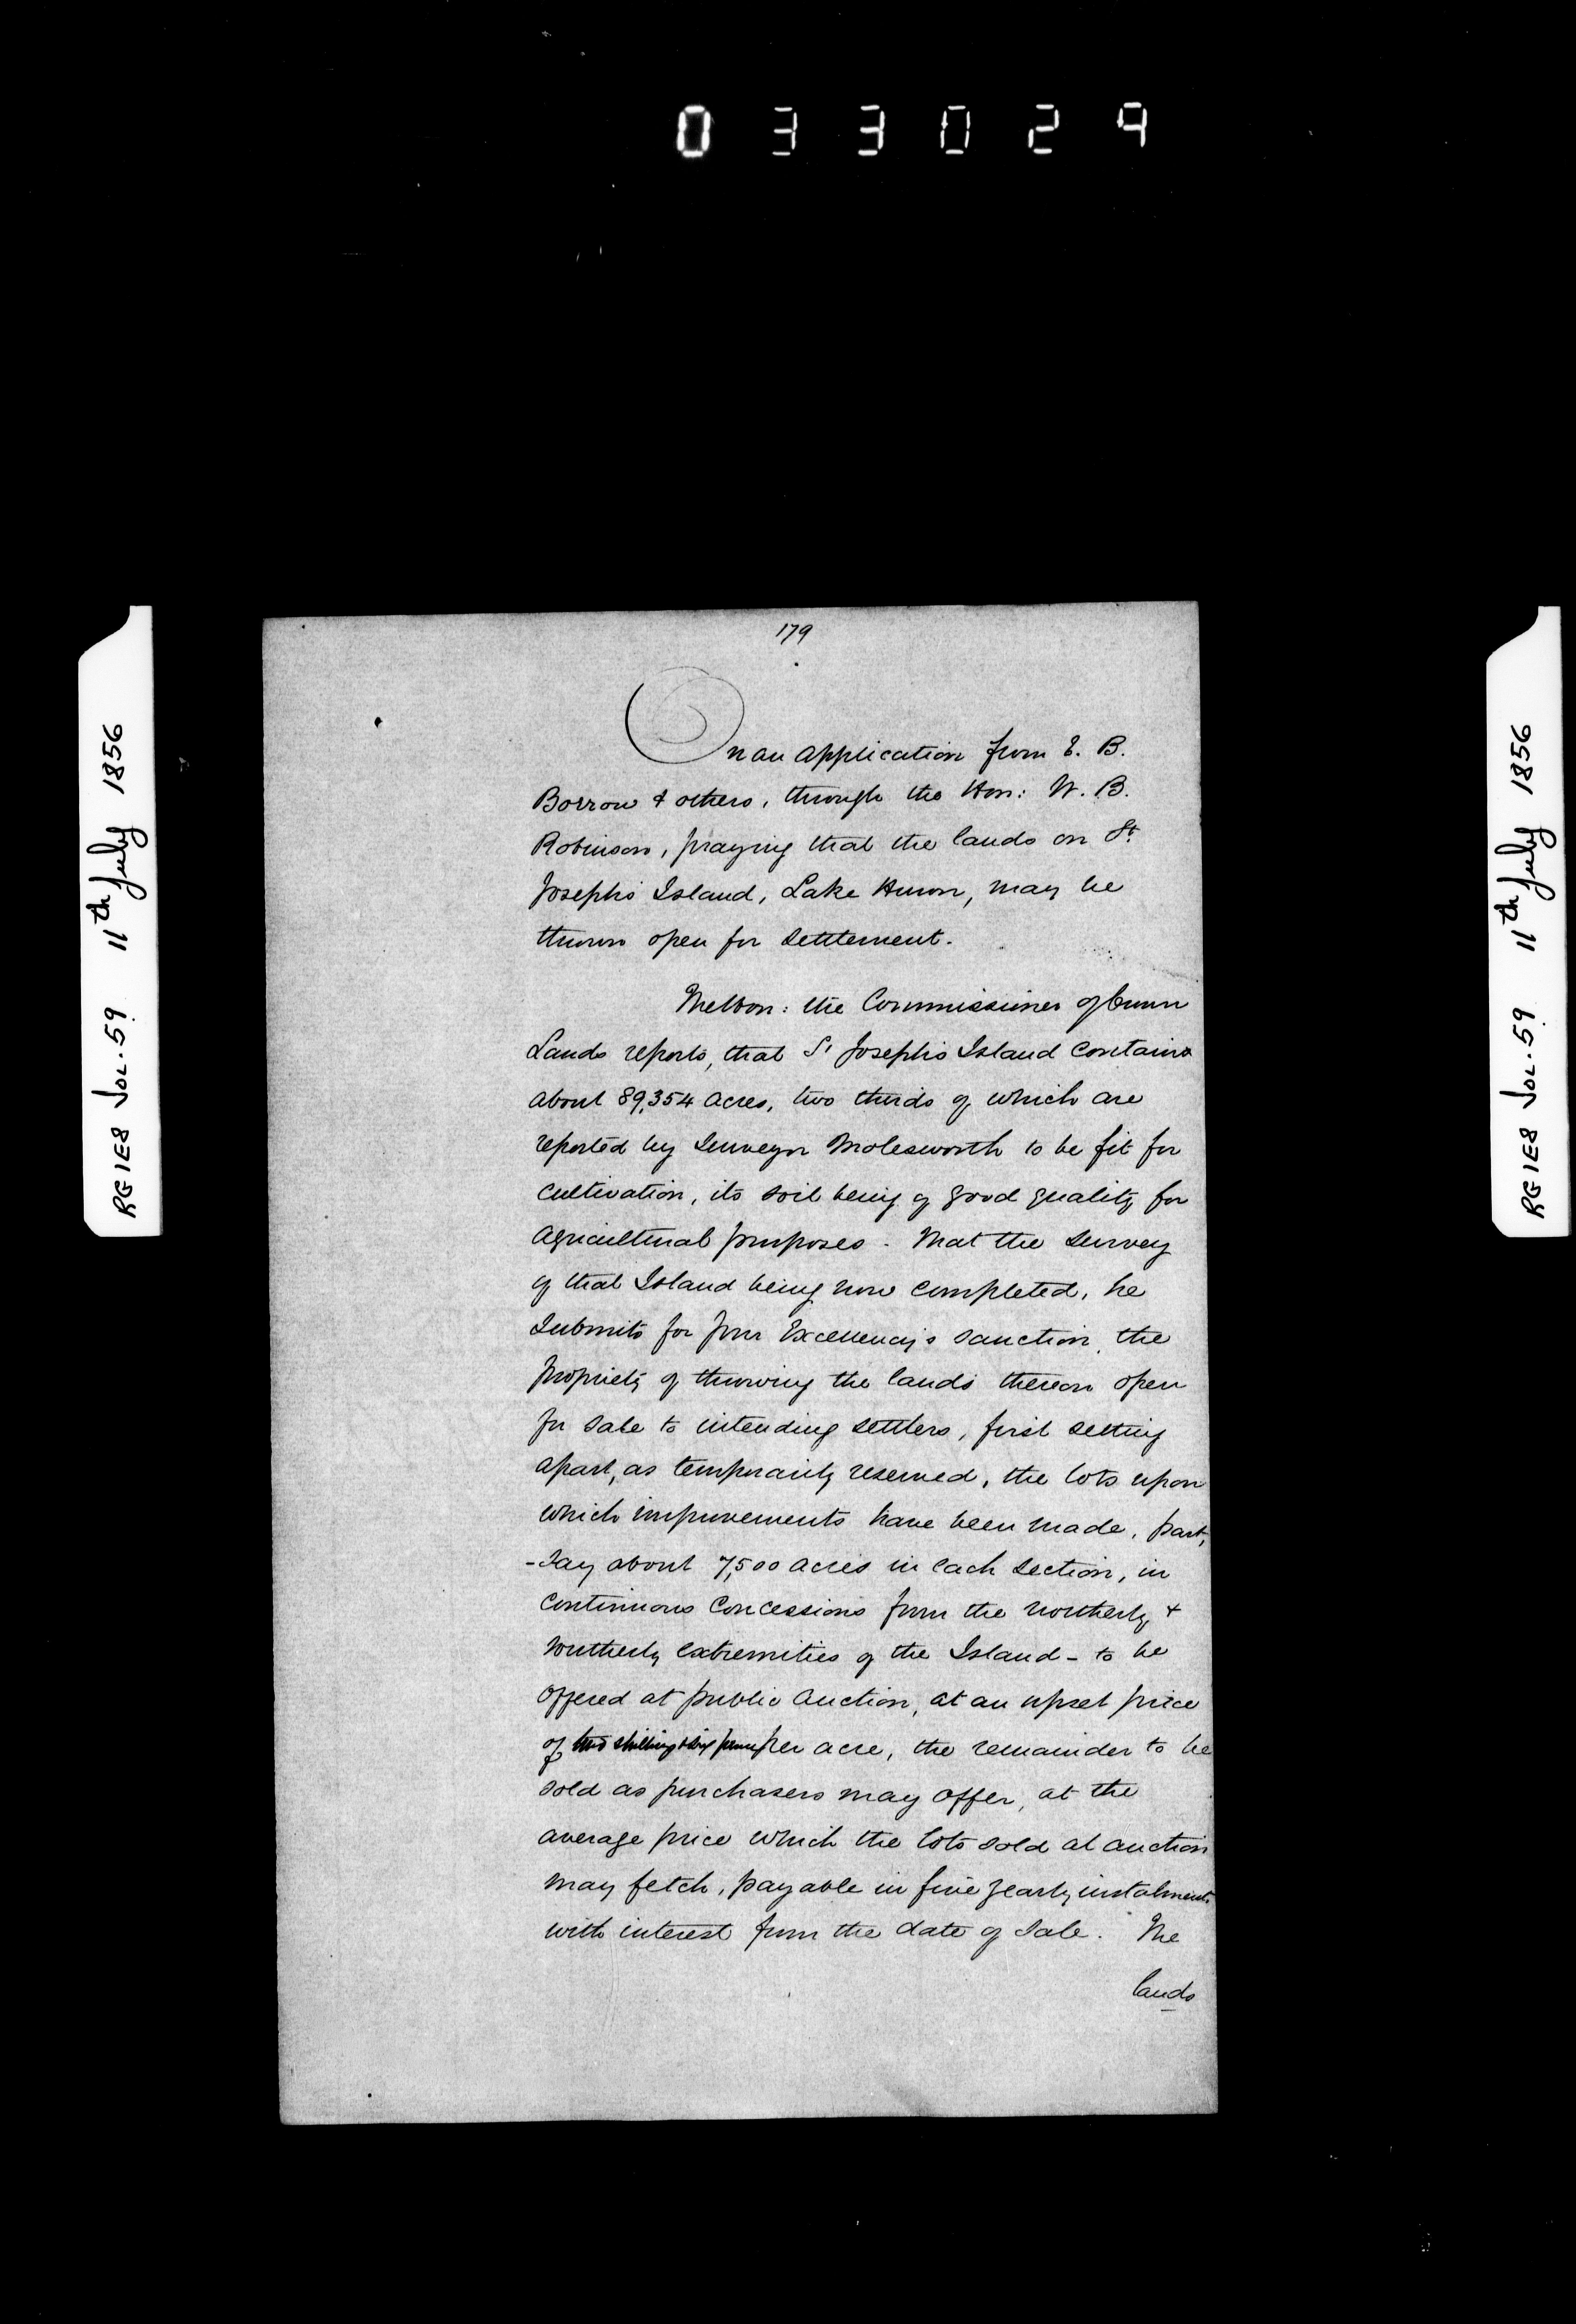 033029
RG1E8 Vol. 59 11th July 1856
179
On an application from E. B.
Borrow & others, through the Hon: W. B.
Robinson, praying that the lands on St.
Joseph's Island, Lake Huron, may be
thrown open for settlement.
The Hon: the Commissioner of Crown
Lands reports, that St Joseph's Island contains
about 89,354 acres, two thirds of which are
reported by Surveyor Molesworth to be fit for
cultivation, its soil being of good quality for
agricultural purposes. That the survey
of that Island being now completed, he
submits for Your Excellency's sanction, the
propriety of throwing the lands thereon open
for sale to intending settlers, first setting
apart, as temporarily reserved, the lots upon
which improvements have been made, part,
-say about 7,500 acres in each section, in
continuous concessions from the northerly &
southerly extremities of the Island - to be
offered at public auction, at an upset price
of two shillings & six pence per acre, the remainder to be
sold as purchasers may offer, at the
average price which the lots sold at auction
may fetch, payable in five yearly instalments
with interest from the date of sale. The
lands
RG1E8 Vol. 59 11th July 1856